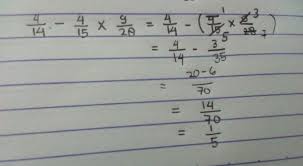 4/14 - 4/15 × 9/28 = 4/14 - (4̶ ¹/1̶5̶ ₅ × 9̶ ³/2̶8̶ ₇)
= 4/14 - 3/35
= 20-6/70
= 14/70
= 1/5